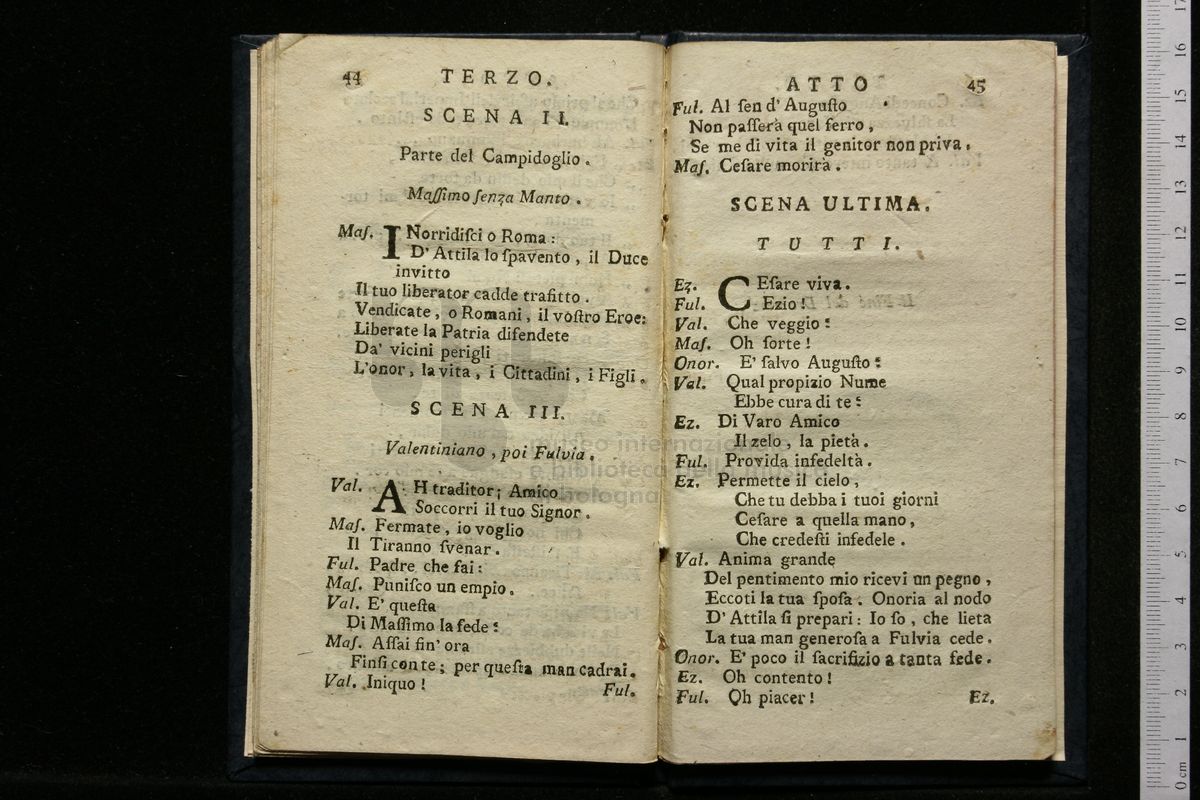 44 TERZO.
SCENA II.
Parte del Campidoglio.
Massimo senza Manto.
Mas. INorridisci o Roma:
D' Attila lo spavento, il Duce
invitto
Il tuo liberator cadde trafitto.
Vendicate, o Romani, il vostro Eroe:
Liberate la Patria difendete
Da' vicini perigli
L'onor, la vita, i Cittadini, i Figli.
SCENA III.
Valentiniano, poi Fulvia.
Val. AH traditor; Amico
Soccorri il tuo Signor.
Mas. Fermate, io voglio
Il Tiranno svenar.
Ful. Padre che fai:
Mas. Punisco un empio.
Val. E' questa
Di Massimo la fede?
Mas. Assai fin' ora
Finsi con te; per questa man cadrai.
Val. Iniquo!
Ful.
ATTO 45
Ful. Al sen d' Augusto
Non passerà quel ferro,
Se me di vita il genitor non priva.
Mas. Cesare morirà.
SCENA ULTIMA.
TUTTI.
Ez. CEsare viva.
Ful. Ezio!
Val. Che veggio?
Mas. Oh sorte!
Onor. E' salvo Augusto?
Val. Qual propizio Nume
Ebbe cura di te?
Ez. Di Varo Amico
Il zelo, la pietà.
Ful. Provida infedeltà.
Ez. Permette il cielo,
Che tu debba i tuoi giorni
Cesare a quella mano,
Che credesti infedele.
Val. Anima grande
Del pentimento mio ricevi un pegno,
Eccoti la tua sposa. Onoria al nodo
D' Attila si prepari: Io so, che lieta
La tua man generosa a Fulvia cede.
Onor. E' poco il sacrifizio a tanta fede.
Ez. Oh contento!
Ful. Oh piacer!
Ez.
museo internazionale
e biblioteca della musica
bologna
0 cm 1 2 3 4 5 6 7 8 9 10 11 12 13 14 15 16 17